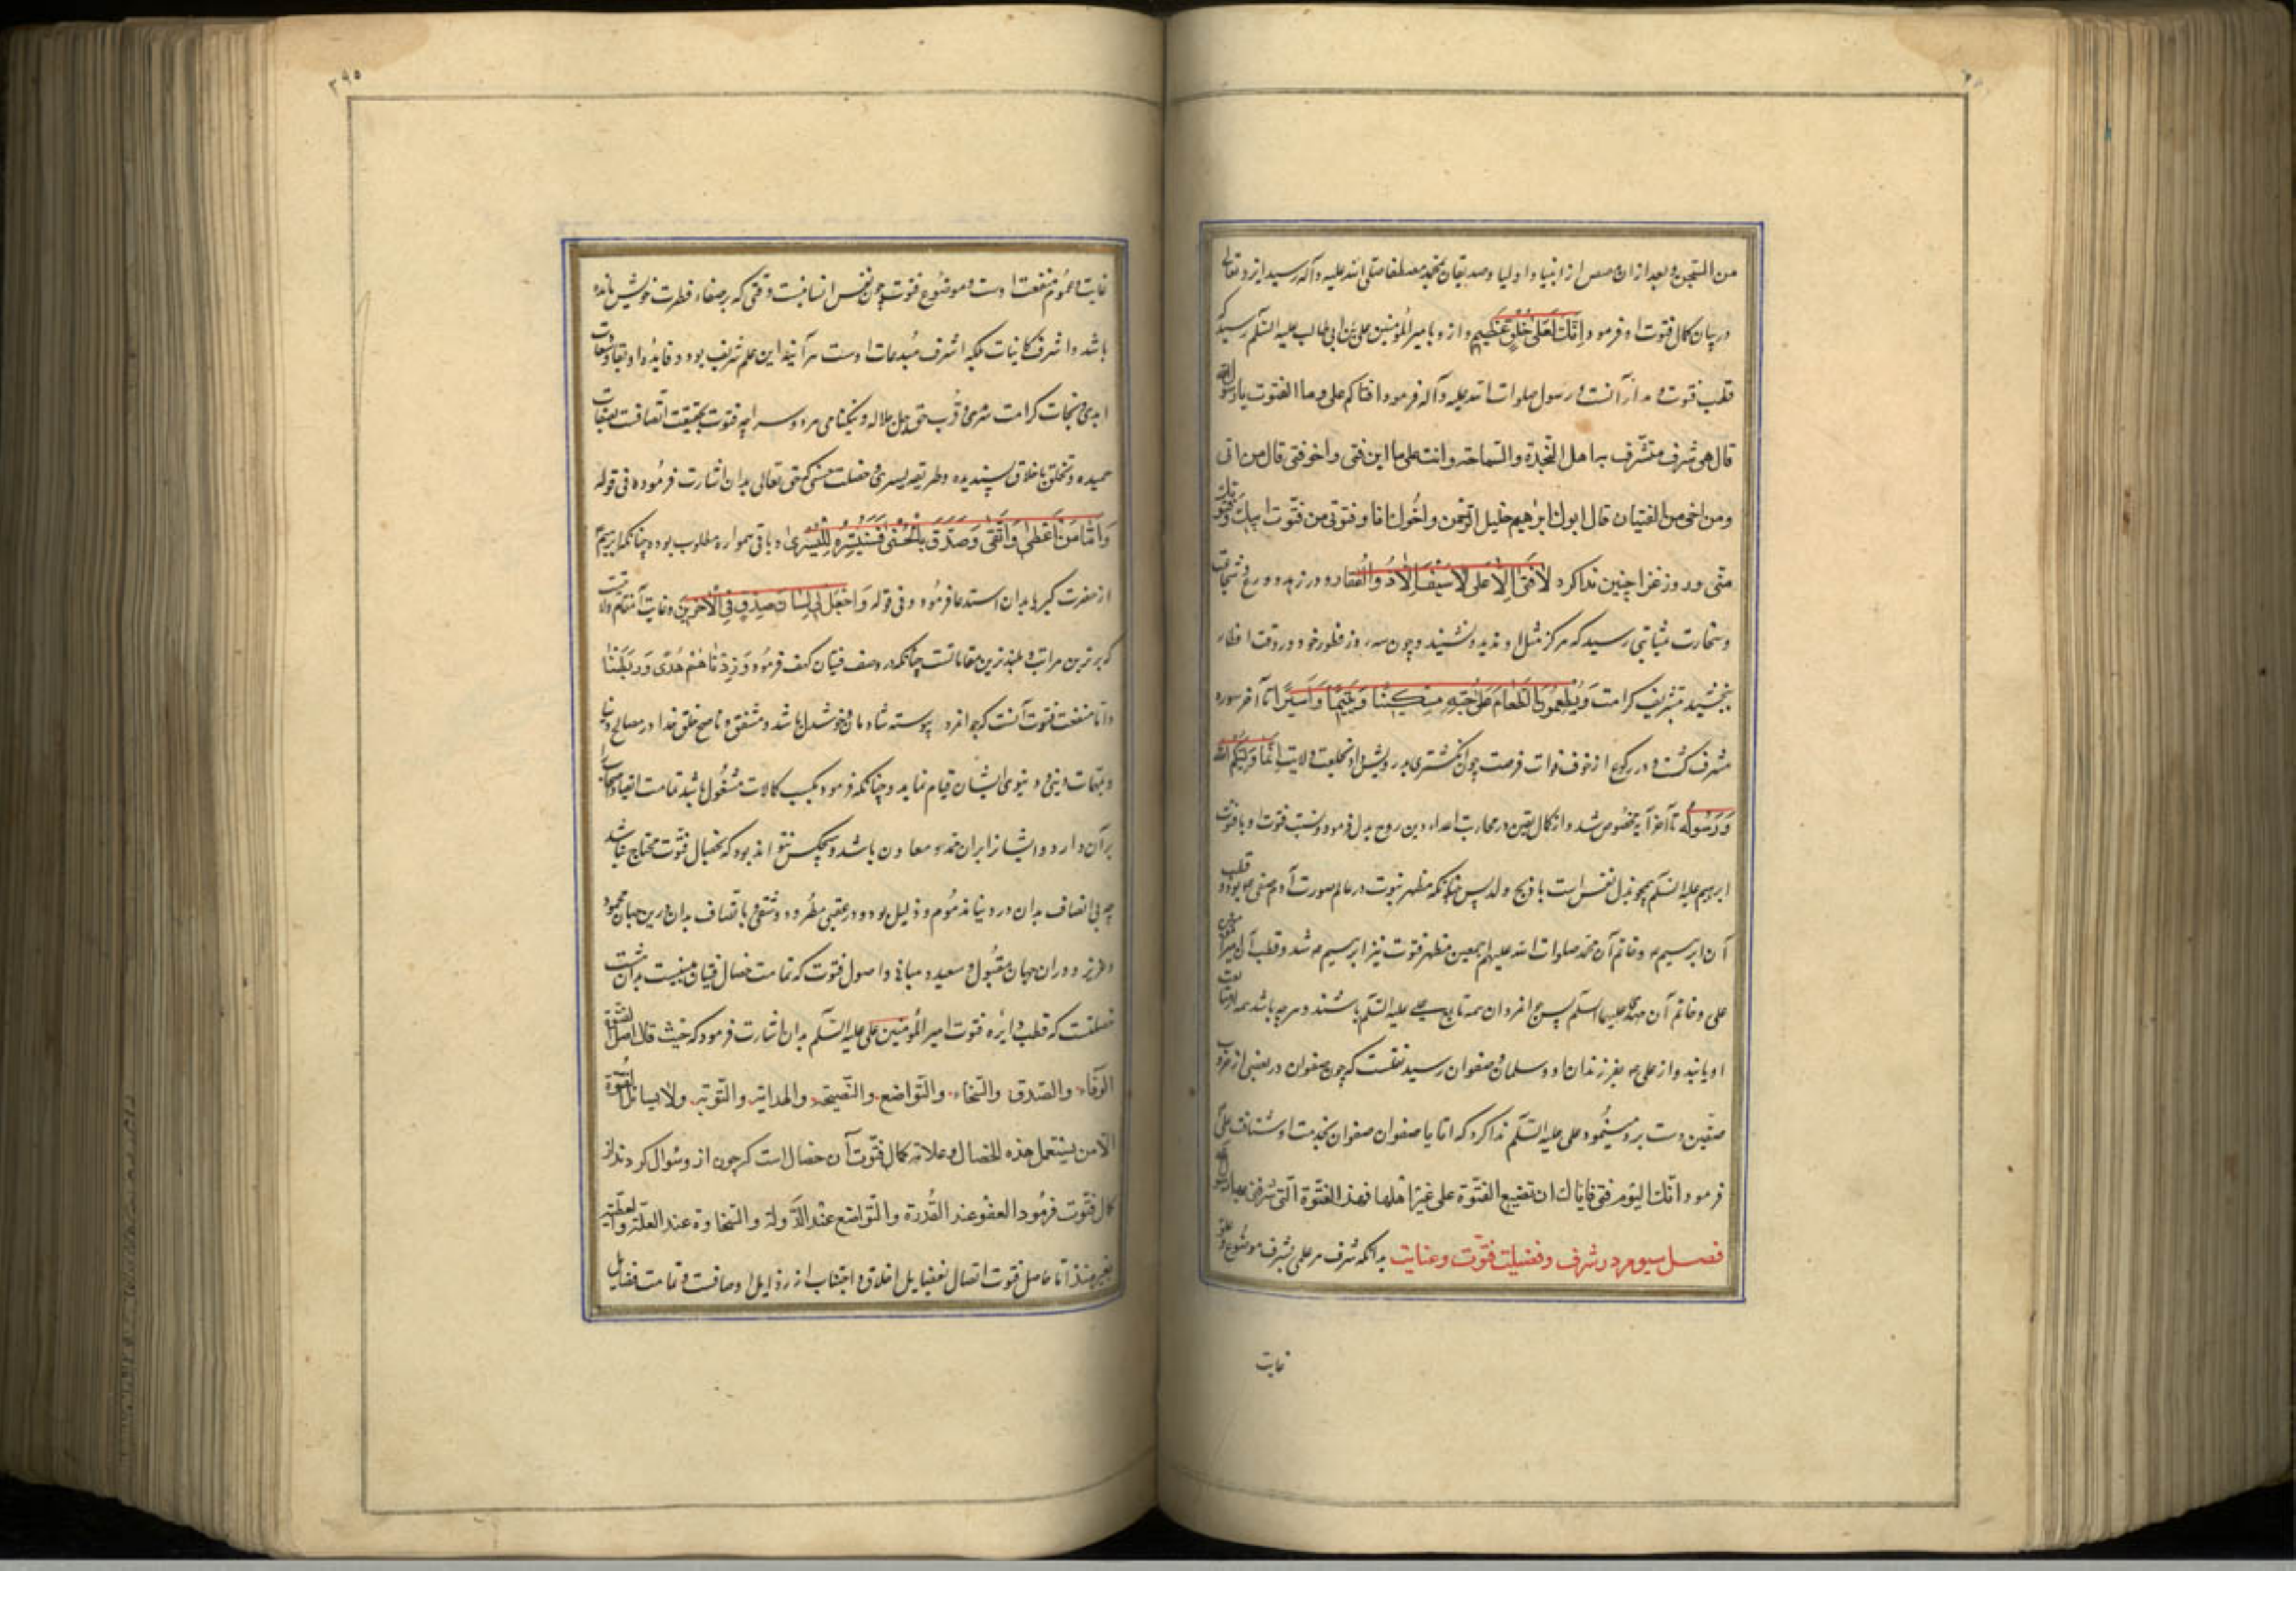 من السّجن و بعد ازان مصر از انبیا و اولیا و صدیقان بمحمد مصطفا صلی الله علیه و آله رسید ایزد تعالی
در بیان کمال فتوت او فرمود وَاِنَّکَ لَعَلیٰ خُلُقٍ عَظیمٍ و ازو بامیر المؤمنین علی بن ابی طالب علیه السّلم رسید که
قطب فتوت و مدار آنست و رسول صلوات الله علیه و آله فرمود افتاکم علی و ما الفتوت یا رسول الله
قال هی شرف متشّرف به اهل النّجدة والسّماحة وانت علی ما ابن فتی واخو فتی قال من ابی
ومن اخی من الفتیان قال ابوک ابرهیم خلیل الرّحمن واخوک انا وفتوتی من فتوت ابیک وفتوتک
منّی و در روز غزا چنین ندا کرد لا فَتیٰ اِلّا عَلی لا سَیْفَ اِلّا ذُوالْفَقار و در زهد و ورع و شجاعت
و سخاوت بمثابتی رسید که هرگز مثل او ندید و نشنید و چون سه روز فطور خود در وقت افطار
ببخشید بتشریف کرامت وَیُطْعِمُونَ الطَّعامَ عَلیٰ حُبِّهِ مِسْکینًا وَیَتیمًا وَاَسیرًا تا آخر سوره
مشرف کشت و در رکوع از خوف فوات فرصت چون انکشتری بدرویش داد بخلعت ولایت اِنَّما وَلِیُّکُمُ الله
وَرَسُولُه تا آخر آیه مخصوص شد و از کمال یقین در محاربت اعداء دین روح بذل فرمود و نسبت فتوت او با فتوت
ابرهیم علیه السّلم همچو بذل نفس است با ذبح ولد پس چنانکه مظهر نبوت در عالم صورت آدم صفی بود و قطب
آن ابرهیم و خاتم آن محمد صلوات الله علیهم اجمعین مظهر فتوت نیز ابرهیم شد و قطب آن امیر المؤمنین
علی و خاتم آن مهدی علیهما السّلم پس جوانمردان همه تابع علی علیه السّلم باشند و هرچه باشد همه از متابعت
او یابند و از علی بغیر فرزندان او و سلمان و صفوان رسید نقلست که چون صفوان در بعضی از حروب
صفّین دست برد مینمُود علی علیه السّلم ندا کرد که اتا یا صفوان صفوان بخدمت او شتافت علی
فرمود انّک الیوم فتی فایّاک ان تضیع الفتوّة علی غیر اهلها فهذا الفتوّة الّتی شرفنی بها رسول الله
فصل سیوم در شرف و فضیلت فتوّت و غنایت بدانکه شرف هر علمی بشرف موضُوع و علوّ
غایت
٣٩٥
غایت و عمُوم منفعت اوست و موضُوع فتوت چون نفس انسانیست وقتی که بر صفاء فطرت خویش مانده
باشد و اشرف کاینات بلکه اشرف مُبدعات اوست هرآینه این علم شریف بود و فایدهٔ او بقا و سعادت
ابدی و نجات کرامت سرمدی و قُرب حق جل جلاله و نیکنامی هر دو سرا چه فتوت بحقیقت اتّصافست بصفات
حمیده و تخلّق باخلاق پسندیده و طریقه یسری و خصلت حسنی که حق تعالی بدان اشارت فرمُوده فی قوله
وَاَمّا مَنْ اَعْطیٰ وَاتَّقیٰ وَصَدَّقَ بِالْحُسْنیٰ فَسَنُیَسِّرُهُ لِلْیُسْریٰ و باقی همواره مطلوب بوده چنانکه ابرهیم
از حضرت کبریا بدان استدعا فرمُود فی قوله وَاجْعَلْ لی لِسانَ صِدْقٍ فِی الْآخِرینَ و غایت آن مقام ولایتست
که برترین مراتب و بلندترین مقاماتست چنانکه در وصف فتیان کهف فرمُود وَزِدْناهُمْ هُدًی وَرَبَطْنا
و اما منفعت فتوت آنست که جوانمرد پیوسته شادمان و خوشدل باشد و مشفق و ناصح خلق خدا در مصالح دنیا
و بمهمات دینی و دنیوی ایشان قیام نماید و چنانکه فرمود بکسب کمالات مشغُول باشد تمامت اتقیا و اصحاب را
بر آن دارد و ایشانرا بران ممدّ و معاون باشد و هیچکس نتواند بود که بخصال فتوّت محتاج نباشد
چه بی اتصاف بدان در دنیا مذمُوم و ذلیل بود و در عقبی مطرُود و شقی و باتصاف بدان درین جهان محمود
و عزیز و دران جهان مقبُول و سعید و مبانی و اصول فتوت که تمامت خصال فتیان مبنیست بدان هشت
خصلتست که قطب دایره فتوت امیر المُؤمنین علی علیه السّلم بدان اشارت فرمود که حیث قال اصل الفتوّة
الوَفاء والصّدق والسّخاء والتّواضع والنّصیحة والهدایة والتّوبة ولا یستاهل الفتوّة
الّا من یستعمل هذه الخصال و علامة کمال فتوّت آن خصال است که چون ازو سُوال کردند از
کمال فتوّت فرمُود العفو عند القُدرة والتّواضع عند الدَّولة والسّخاوة عند القلّة والعطیّة
بغیر منّة اما حاصل فتوت اتصال بفضایل اخلاق و اجتناب از رذایل اوصافست و تمامت فضایل